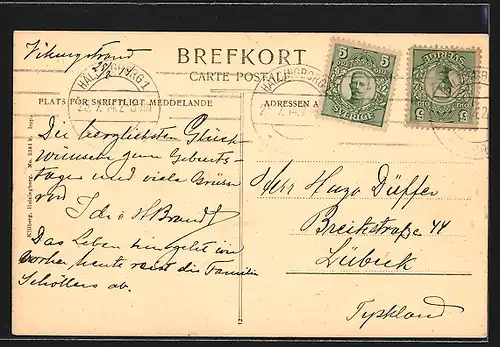 Vikingstrand
28/2
BREFKORT
CARTE POSTALE
HÄLSINGBORG 1
PLATS FÖR SKRIFTLIGT MEDDELANDE
ADRESSEN A
5 5
SVERIGE
Die herzlichsten Glück-
wünsche zum Geburts-
tage und viele Grüsse
von
Das Leben
vorher, heute reist die Familie
Schöllers ab.
Herr Hugo Düffer
Breitestraße 44
Lübeck
Tyskland
Killberg, Helsingborg. No.